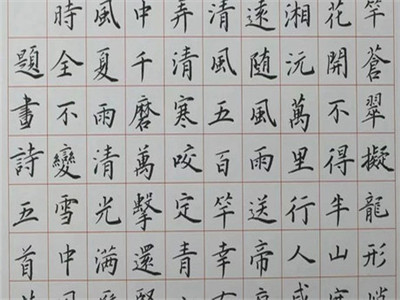 竿蒼翠擬龍形
花開不得半山
湘沅萬里行人
遠隨風雨送帝
清風五百竿幸
弄清寒咬定青
中千磨萬擊還
風夏雨清光滿
時全不變雪中
題畫詩五首